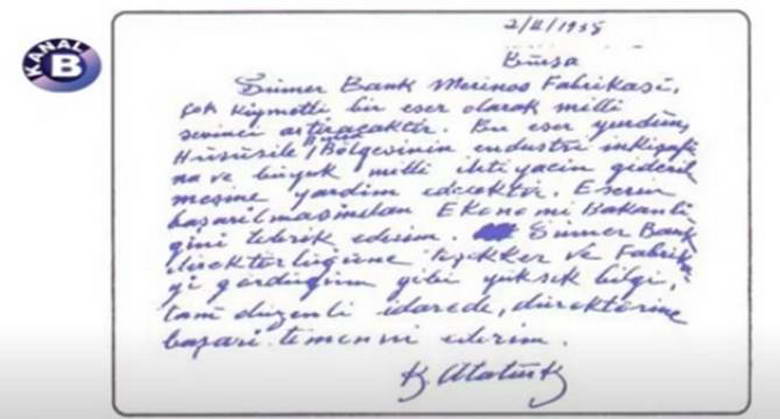 KANAL B
2/II/1938
Bursa
Sümer Bank Merinos Fabrikası,
çok kıymetli bir eser olarak milli
sevinci artıracaktır. Bu eser yurdun,
Bursa
Hususile Bölgesinin endüstri inkişafı
na ve büyük milli ihtiyacın gideril
mesine yardım edecektir. Eserin
başarılmasından Ekonomi Bakanlı
ğını tebrik ederim. Sümer Bank
direktörlüğüne teşekkür ve Fabrika
yı gördüğüm gibi yüksek bilgi,
tam düzenli idarede, direktörüne
başarı temenni ederim.
K. Atatürk